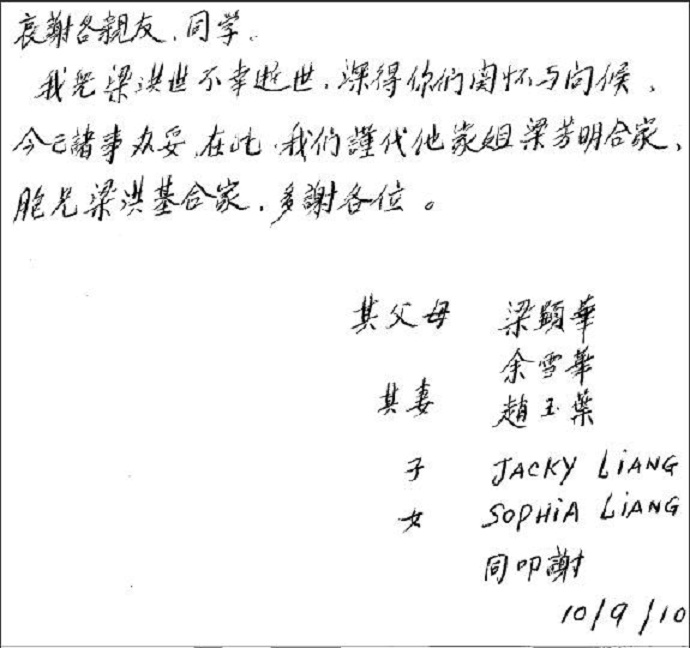 哀謝各親友、同学。
我兒梁洪世不幸逝世，深得你們関怀与问候、
今已諸事办妥，在此，我们謹代他家姐梁芳明合家、
胞兄梁洪基合家，多謝各位。
其父母 梁顯華
余雪華
其妻 趙玉葉
子 JACKY LiANG
女 SOPHiA LiANG
同叩謝
10/9/10